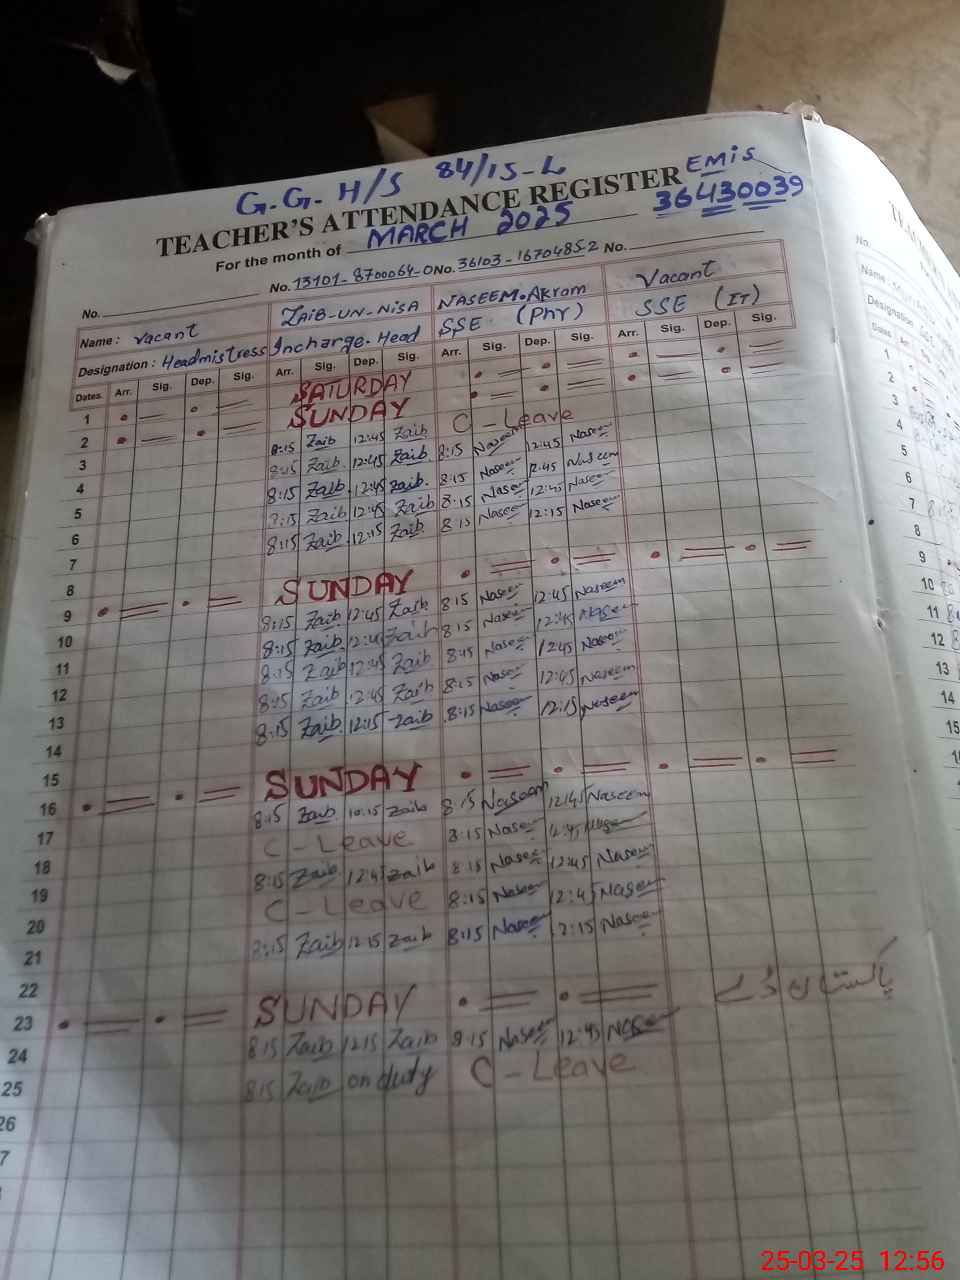 G.G. H/S 84/15-L
EMIS
TEACHER'S ATTENDANCE REGISTER
36430039
For the month of MARCH 2025
No. No. 13101-8700064-0 No. 36103-1670485-2 No.
Name: Vacant ZAIB-UN-NISA NASEEM.Akram Vacant
Designation: Headmistress Incharge.Head SSE (Phy) SSE (IT)
Dates Arr. Sig. Dep. Sig. Arr. Sig. Dep. Sig. Arr. Sig. Dep. Sig. Arr. Sig. Dep. Sig.
1 SATURDAY
2 SUNDAY
3 8:15 Zaib 12:45 Zaib C-Leave
4 8:15 Zaib 12:45 Zaib 8:15 Naseem 12:45 Naseem
5 8:15 Zaib 12:45 Zaib 8:15 Naseem 12:45 Naseem
6 8:15 Zaib 12:45 Zaib 8:15 Naseem 12:45 Naseem
7 8:15 Zaib 12:15 Zaib 8:15 Naseem 12:15 Naseem
8
9 SUNDAY
10 8:15 Zaib 12:45 Zaib 8:15 Naseem 12:45 Naseem
11 8:15 Zaib 12:45 Zaib 8:15 Naseem 12:45
12 8:15 Zaib 12:45 Zaib 8:15 Naseem 12:45 Naseem
13 8:15 Zaib 12:45 Zaib 8:15 Naseem 12:45 Naseem
14 8:15 Zaib 12:15 Zaib 8:15 Naseem 12:15 Naseem
15
16 SUNDAY
17 8:15 Zaib 10:15 Zaib 8:15 Naseem 12:45 Naseem
18 C-Leave 8:15 Naseem 12:45
19 8:15 Zaib 12:45 Zaib 8:15 Naseem 12:45 Naseem
20 C-Leave 8:15 Naseem 12:45 Naseem
21 8:15 Zaib 12:15 Zaib 8:15 Naseem 12:15 Naseem
22
23 SUNDAY پاکستان ڈے
24 8:15 Zaib 12:15 Zaib 8:15 Naseem 12:45 Naseem
25 8:15 Zaib on duty C-Leave
26
7
No.
Name:
Designation
Dates
1
2
3
4
5
6
7
8
9
10
11
12
13
14
15
25-03-25 12:56